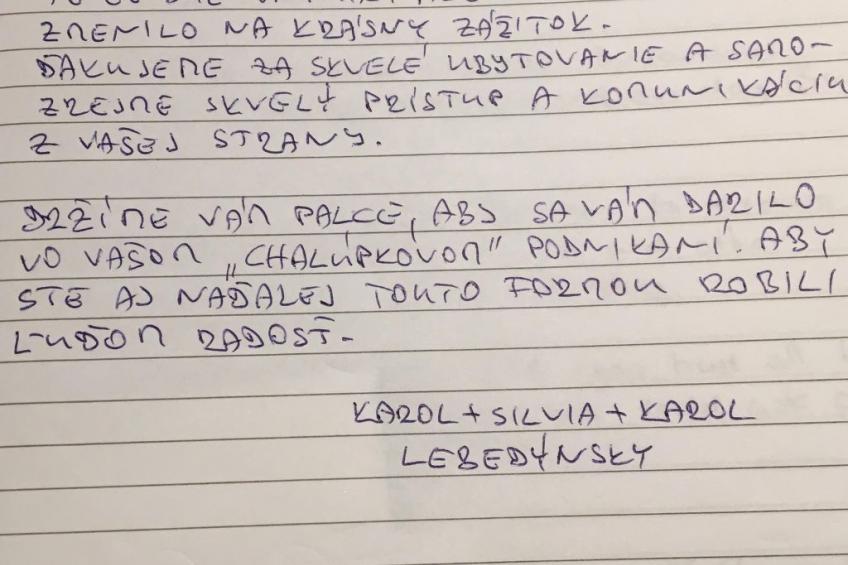 ZMENILO NA KRÁSNY ZÁŽITOK.
ĎAKUJEME ZA SKVELÉ UBYTOVANIE A SAMO-
ZREJME SKVELÝ PRÍSTUP A KOMUNIKÁCIU
Z VAŠEJ STRANY.
DRŽÍME VÁM PALCE, ABY SA VÁM DARILO
VO VAŠOM „CHALÚPKOVOM" PODNIKANÍ. ABY
STE AJ NAĎALEJ TOUTO FORMOU ROBILI
ĽUĎOM RADOSŤ.
KAROL + SILVIA + KAROL
LEBEDÝNSKY